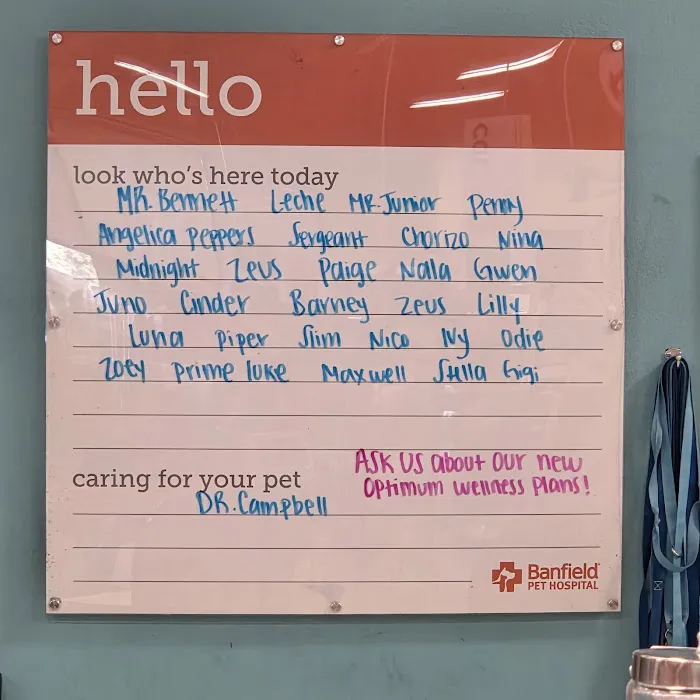 hello
look who's here today
MR. Bennett Leche MR. Junior Penny
Angelica Peppers Sergeant Chorizo Nina
Midnight Zeus Paige Nalla Gwen
Juno Cinder Barney Zeus Lilly
Luna Piper Slim Nico Ivy Odie
Zoey Prime Luke Maxwell Stella Gigi
caring for your pet
ASK US about our new
Optimum wellness Plans!
DR. Campbell
Banfield
PET HOSPITAL